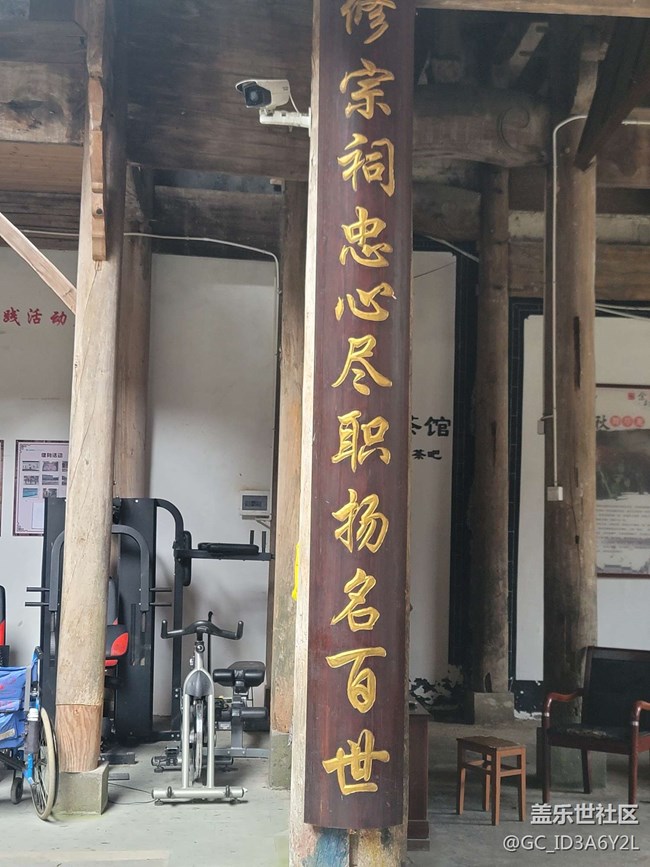 修宗祠忠心尽职扬名百世
践活动
茶馆
茶吧
盖乐世社区
@GC_ID3A6Y2L